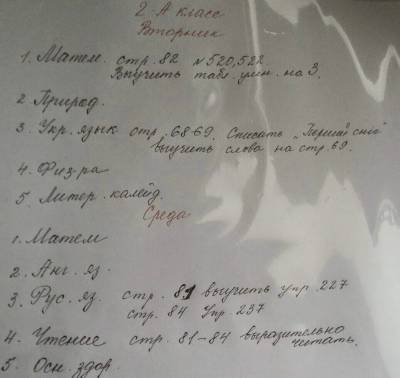 2-А класс
Вторник
1. Матем. стр. 82 №520,522.
Выучить табл. умн. на 3.
2 Природ.
3. Укр. язык стр. 68-69. Списать „Перший сніг"
выучить слова на стр. 69.
4. Физ-ра
5. Литер. калейд.
Среда
1. Матем
2. Анг. яз.
3. Рус. яз. стр. 81 выучить упр. 227
стр. 84 Упр. 237
4. Чтение стр. 81-84 выразительно
читать.
5. Осн. здор.